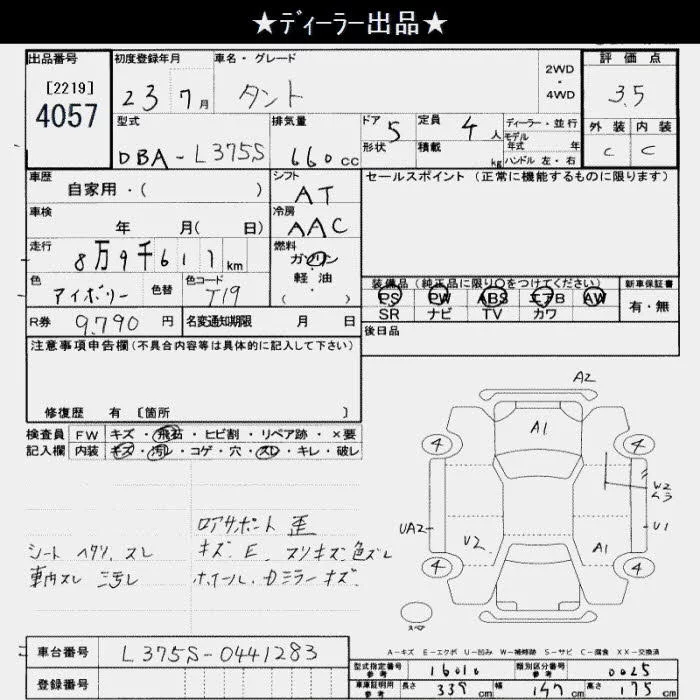 ★ディーラー出品★
出品番号 初度登録年月 車名・グレード 2WD ・ 4WD 評価点
[2219] 4057 23 7月 タント 3.5
型式 排気量 ドア 5 定員 4人 ディーラー・並行 外装 内装
モデル年式 年
DBA-L375S 660cc 形状 積載 kg ハンドル 左・右 C C
車歴 シフト セールスポイント(正常に機能するものに限ります)
自家用・( ) AT
車検 冷房
年 月( 日) AAC
走行 燃料
8万9千617km ガソリン
軽・油
( )
色 色替 色コード 装備品(純正品に限り○をつけてください) 新車保証書
アイボリー T19 PS PW ABS エアB AW 有・無
SR ナビ TV カワ
R券 9,790円 名変通知期限 月 日 後日品
注意事項申告欄(不具合内容等は具体的に記入して下さい)
修復歴 有 [箇所 ]
検査員 FW キズ・飛石・ヒビ割・リペア跡・×要
記入欄 内装 キズ・汚レ・コゲ・穴・スレ・キレ・破レ
ロアサポート 歪
シート ヘタリ、スレ キズ、E、スリキズ色ズレ
車内スレ 汚レ ホイール、Dミラーキズ
A2
A1
4 4
W2
ムラ
UA2 U2 A1 U1
4 4
スペア
A-キズ E-エクボ U-凹み W-補修跡 S-サビ C-腐食 XX-交換済
車台番号 L375S-0441283
登録番号
型式指定番号 参考 16010 類別区分番号 参考 0025
車庫証明用 参考 長さ 339cm 幅 147cm 高さ 175cm